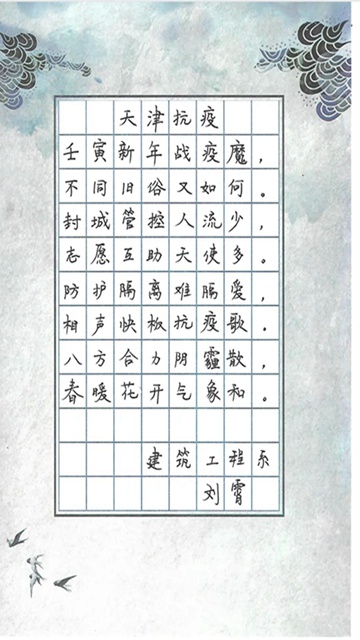 天津抗疫
壬寅新年战疫魔，
不同旧俗又如何。
封城管控人流少，
志愿互助天使多。
防护隔离难隔爱，
相声快板抗疫歌．
八方合力阴霾散，
春暖花开气象和。
建筑工程系
刘霄